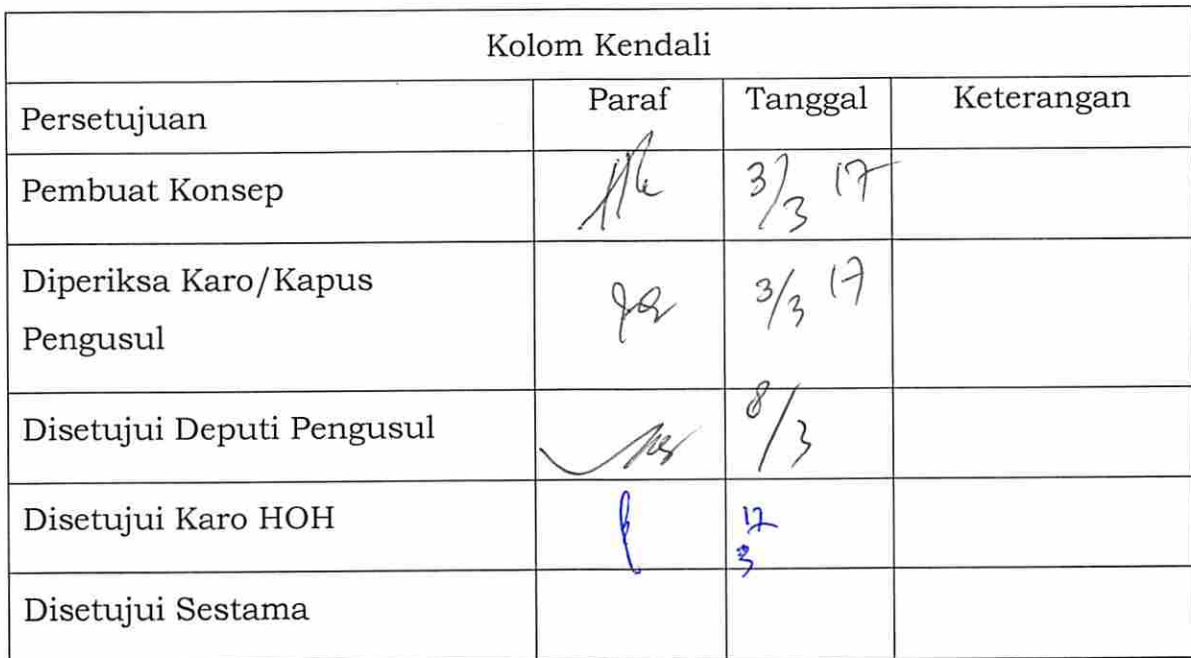 Kolom Kendali
Persetujuan Paraf Tanggal Keterangan
Pembuat Konsep 3/3 17
Diperiksa Karo/Kapus 3/3 17
Pengusul
Disetujui Deputi Pengusul 8/3
Disetujui Karo HOH 17
3
Disetujui Sestama